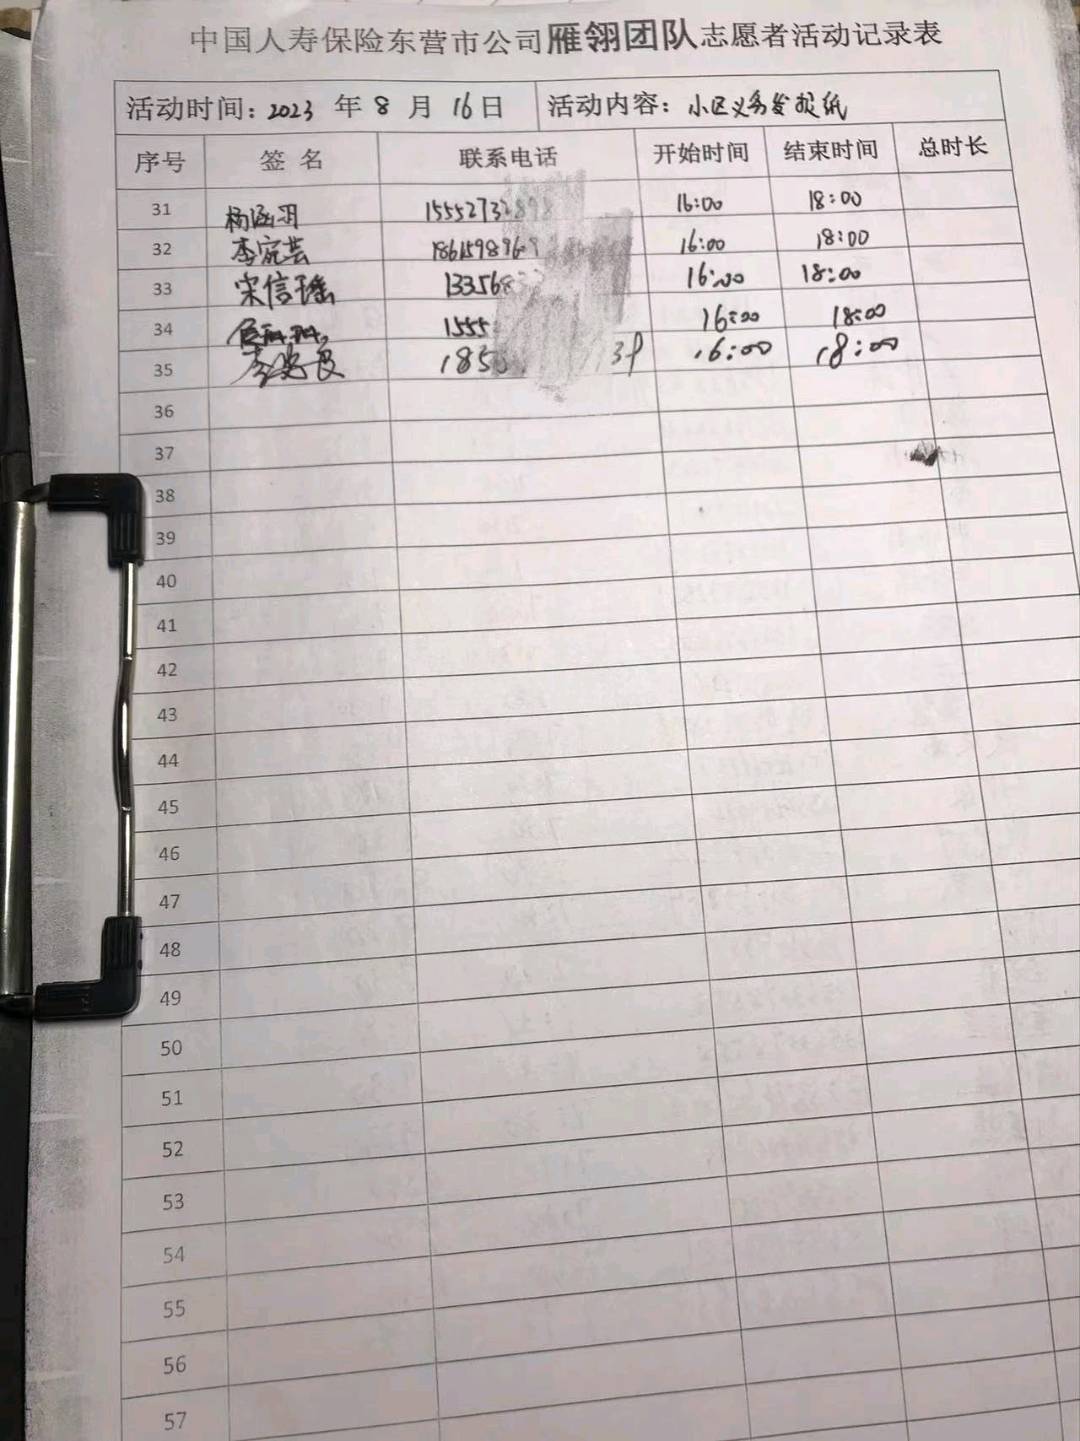 中国人寿保险东营市公司雁翎团队志愿者活动记录表
活动时间: 2023 年 8 月 16 日 活动内容: 小区义务发报纸
序号 签 名 联系电话 开始时间 结束时间 总时长
31 杨涵羽 16:00 18:00
32 李宛芸 16:00 18:00
33 宋信瑶 16:00 18:00
34 16:00 18:00
35 16:00 18:00
36
37
38
39
40
41
42
43
44
45
46
47
48
49
50
51
52
53
54
55
56
57